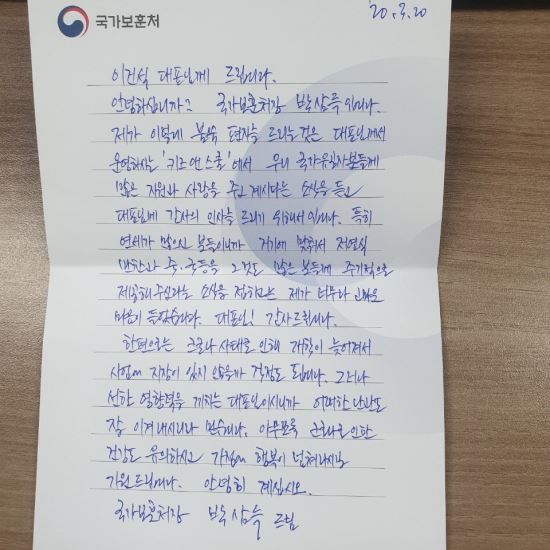 국가보훈처
'20. 3. 20
이건식 대표님께 드립니다.
안녕하십니까? 국가보훈처장 박삼득입니다.
제가 이렇게 불쑥 편지를 드리는 것은 대표님께서
운영하시는 '키즈앤스쿨'에서 우리 국가유공자분들께
많은 지원과 사랑을 주고 계시다는 소식을 듣고
대표님께 감사의 인사를 드리기 위해서입니다. 특히
연세가 많으신 분들이니까 거기에 맞춰서 저염식
반찬과 죽·국 등을 그것도 많은 분들께 주기적으로
제공해 주신다는 소식을 접하고는 제가 너무나 고마운
마음이 들었습니다. 대표님! 감사드립니다.
한편으로는 코로나 사태로 인해 개학이 늦어져서
사업에 지장이 있지 않을까 걱정도 됩니다. 그러나
선한 영향력을 끼치는 대표님이시니까 어떠한 난관도
잘 이겨내시리라 믿습니다. 아무쪼록 코로나로 인한
건강도 유의하시고 가정에 행복이 넘쳐나시길
기원드립니다. 안녕히 계십시오.
국가보훈처장 박삼득 드림